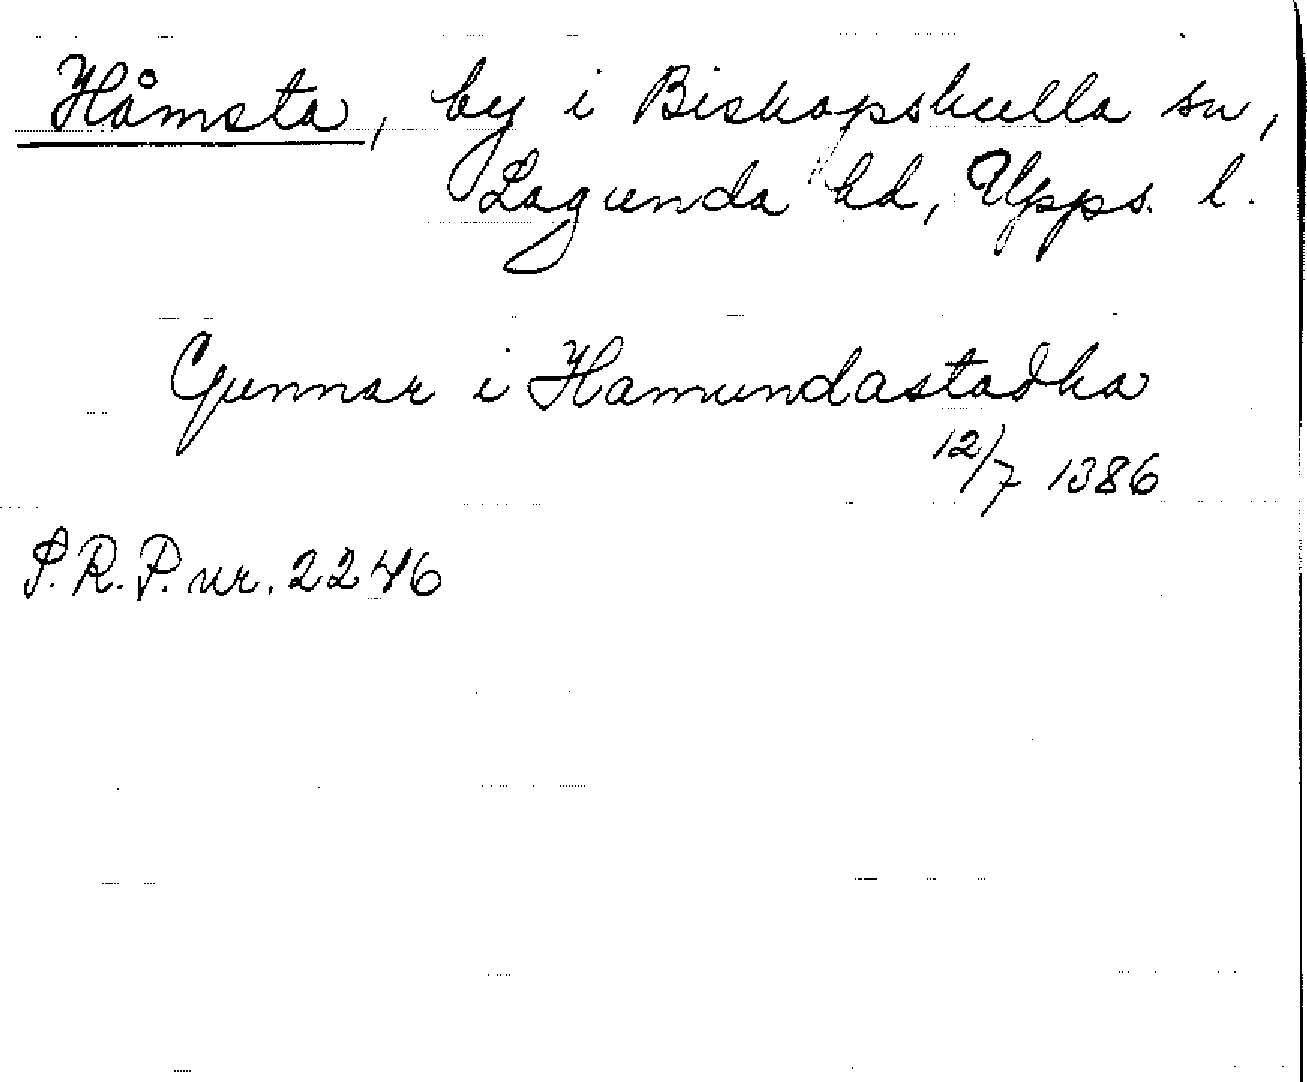 Håmsta, by i Biskopskulla sn,
Lagunda hd, Upps. l.
Gunnar i Hamundastadha
12/7 1386
S.R.P. nr. 2246